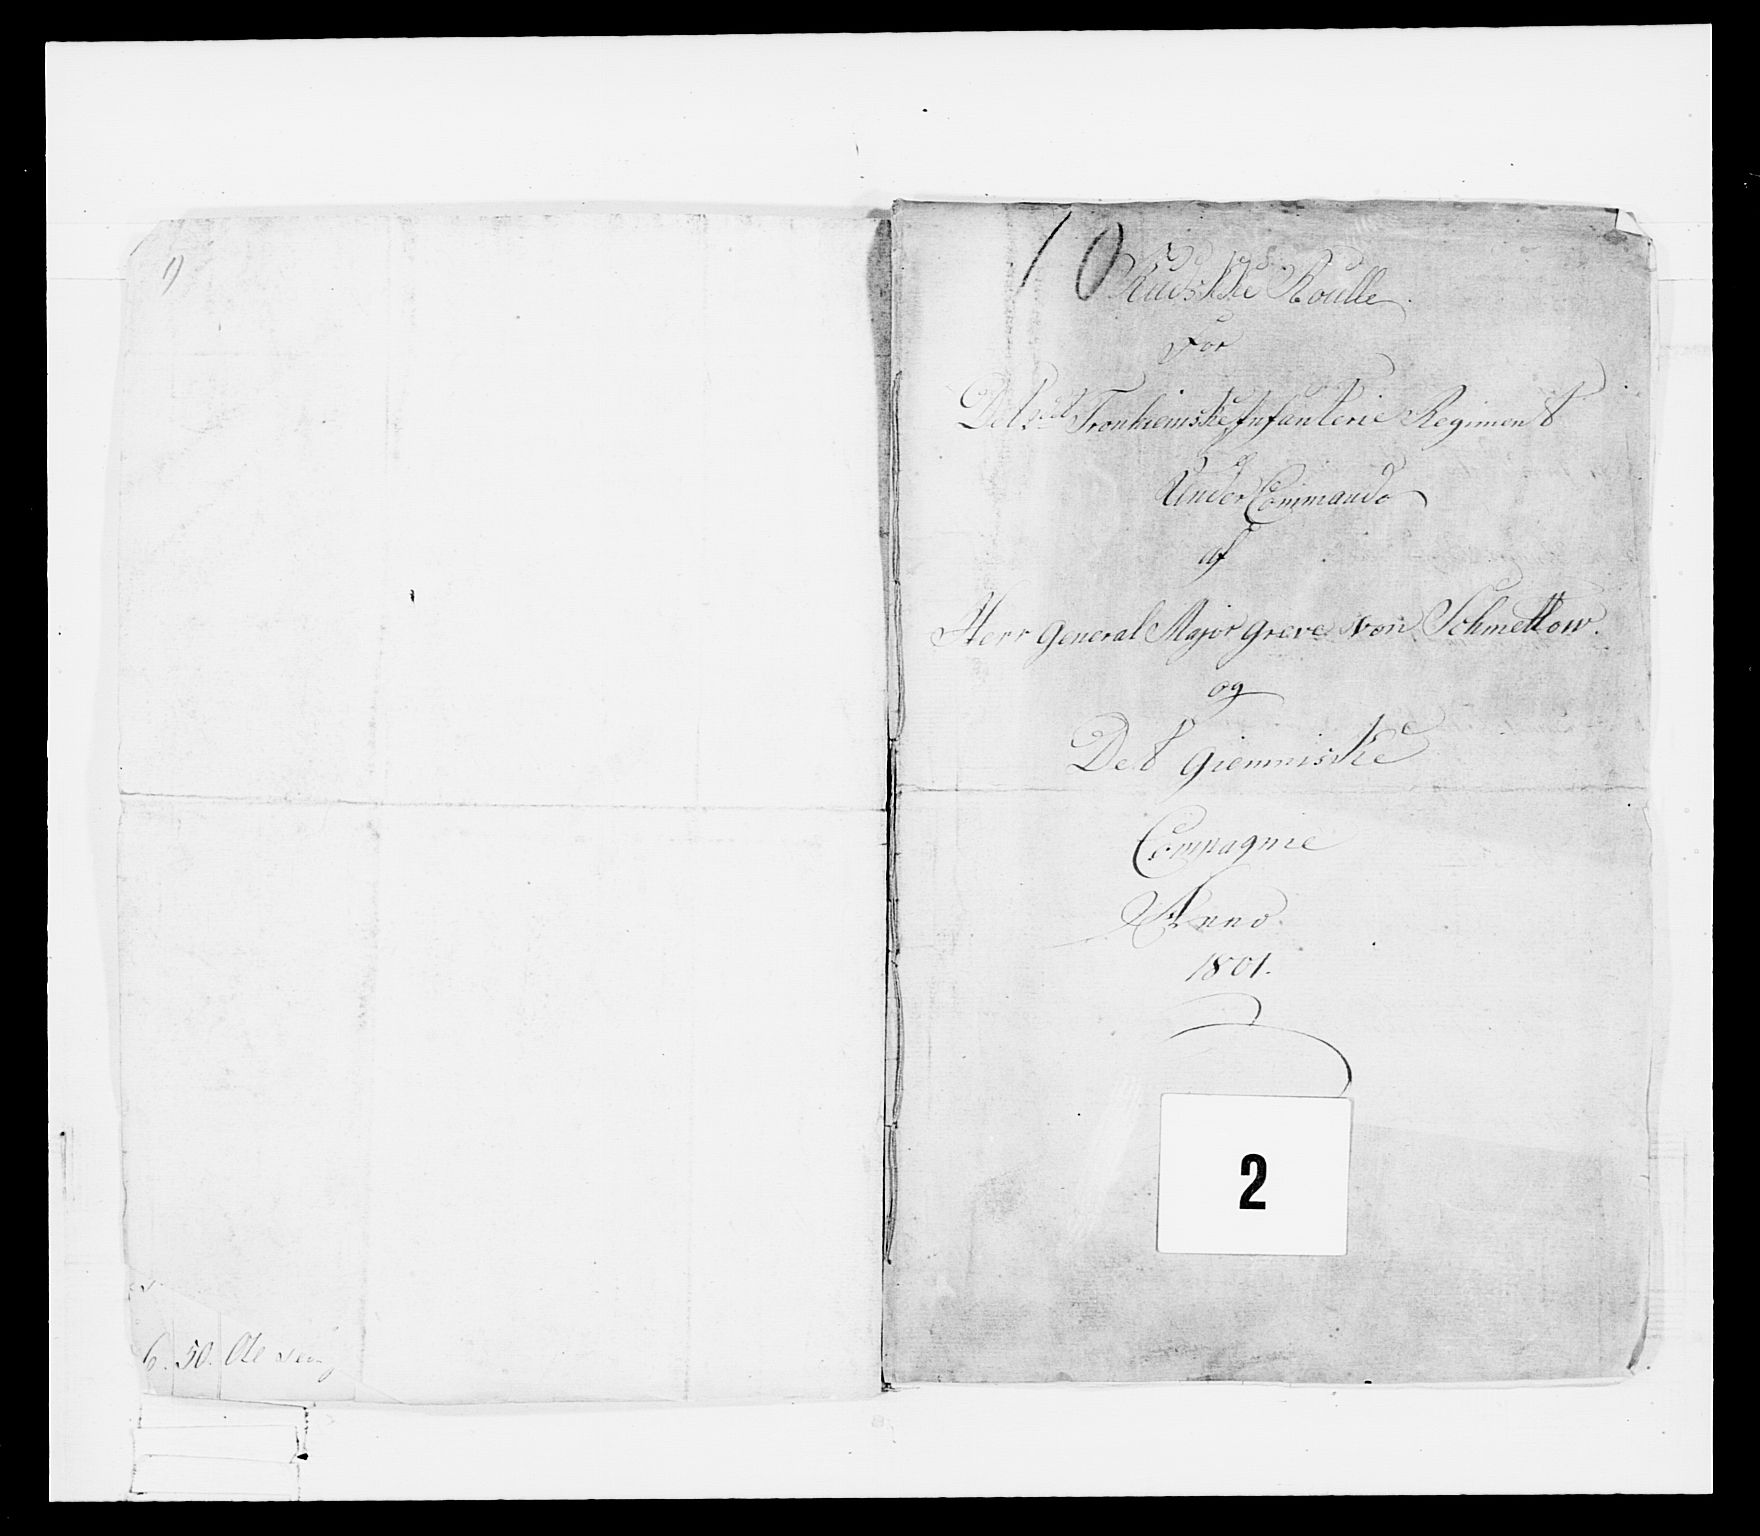 1)
6. 50. Ole
10
Rulle
For
Det 2det Tronhiemske Infanterie Regiment
Under Commando
af
Herr General Major Greve von Schmettow.
og
Det Giemniske
Compagnie
Anno
1801.
2